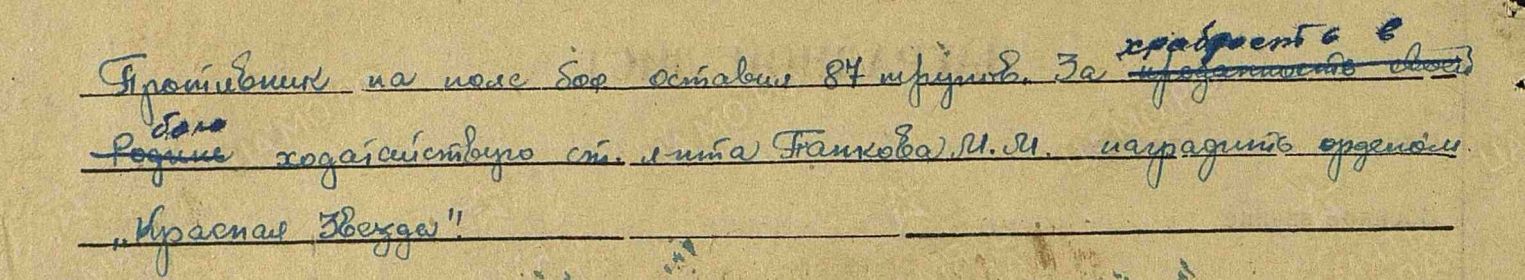 храбрость в
Противник на поле боя оставил 87 трупов. За преданность своей
бою
Родине ходатайствую ст. л-нта Панкова М.М. наградить орденом
„Красная Звезда"